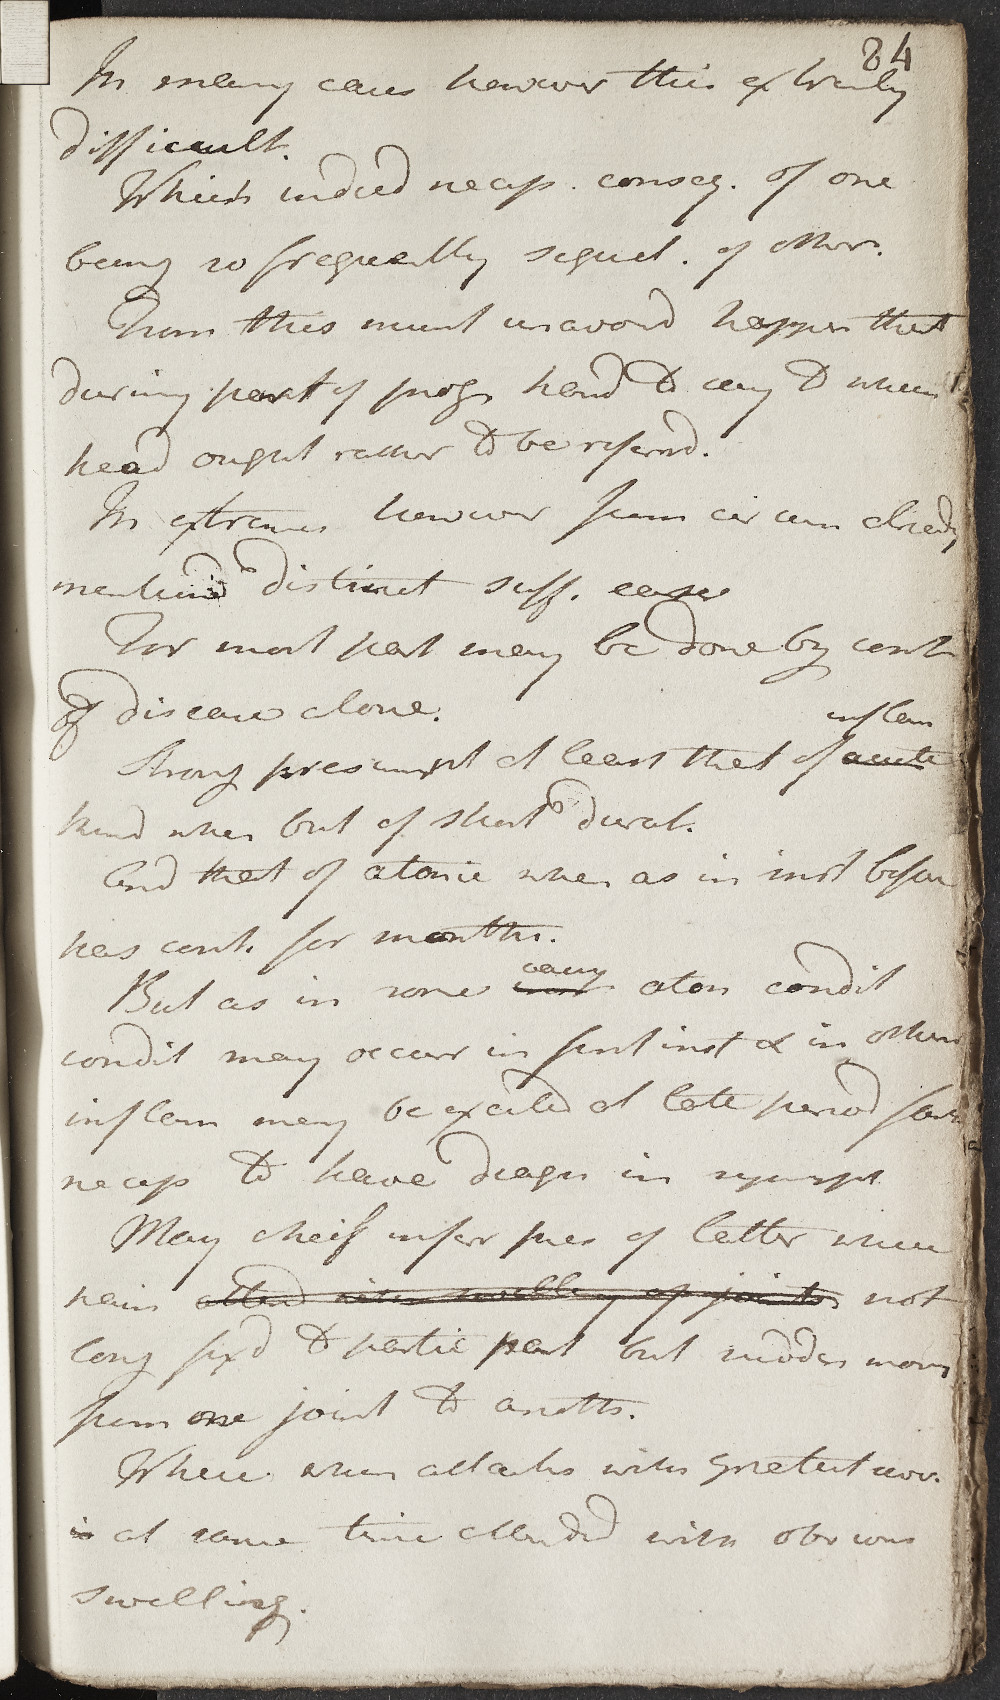 84
In many cases however this extremly
difficult.
Which indeed necess. conseq. of one
being so frequently sequel. of other.
From this must unavoid happen that
during part of progr hard to say to whic
head ought rather to be referrd.
In extremes however from circum alredy
mentiond distinct suff. easy
For most part may be done by cont
of disease alone.
inflam
Strong presumpt at least that of acute
kind when but of short durat.
And that of atonic when as in inst befor
has cont. for months.
But as in some cases aton condit
condit may occur in first inst & in others
inflam may be excited at late period
necess to have diagn in sympt
May cheif infer pres of latter when
pain attend with swelling of joints not
long fixd to partic part but sudden mov
from one joint to anoth.
Where when attacks with greatest
is at same time attended with obvious
swelling.